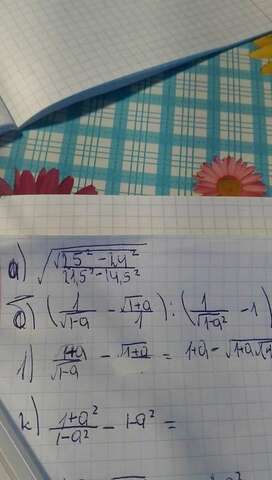 а) √(√(25² - 24²) / (21,5² - 14,5²))
б) (1/√(1-a) - √(1+a)/1) : (1/√(1-a²) - 1)
1) 1+a/√(1-a) - √(1+a) = 1+a - √(1+a
2) (1+a²)/(1-a²) - 1-a² =